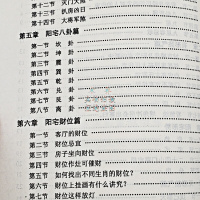 第十二节 天门天舀
第十三节 扒房凶日
第十四节 大将军煞
第五章 阳宅八卦篇
第一节 坎 卦
第二节 坤 卦
第三节 震 卦
第四节 巽 卦
第五节 乾 卦
第六节 兑 卦
第七节 艮 卦
第八节 离 卦
第六章 阳宅财位篇
第一节 客厅的财位
第二节 财位忌宜
第三节 房子坐向财位
第四节 财位作灶可催财
第五节 如何找出不同生肖的财位?
第六节 财位上挂画有什么讲究?
第七节 财位这样放灯